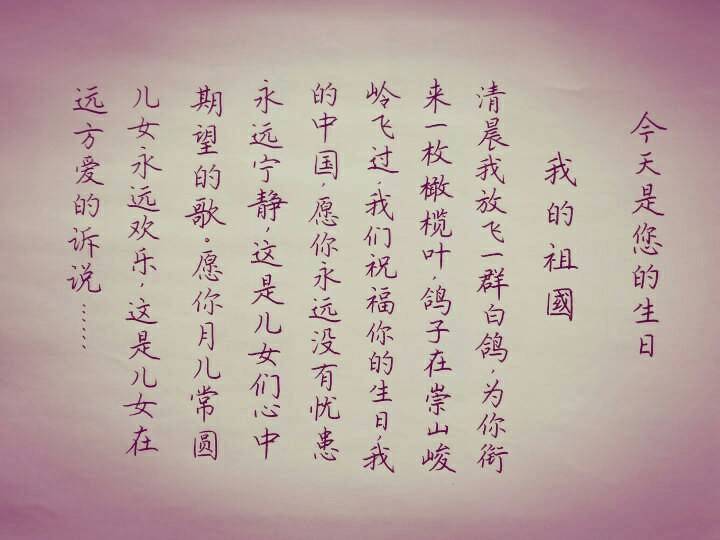 今天是您的生日
我的祖國
清晨我放飞一群白鸽，为你衔
来一枚橄榄叶，鸽子在崇山峻
岭飞过，我们祝福你的生日，我
的中国，愿你永远没有忧患
永远宁静，这是儿女们心中
期望的歌。愿你月儿常圆
儿女永远欢乐，这是儿女在
远方爱的诉说……